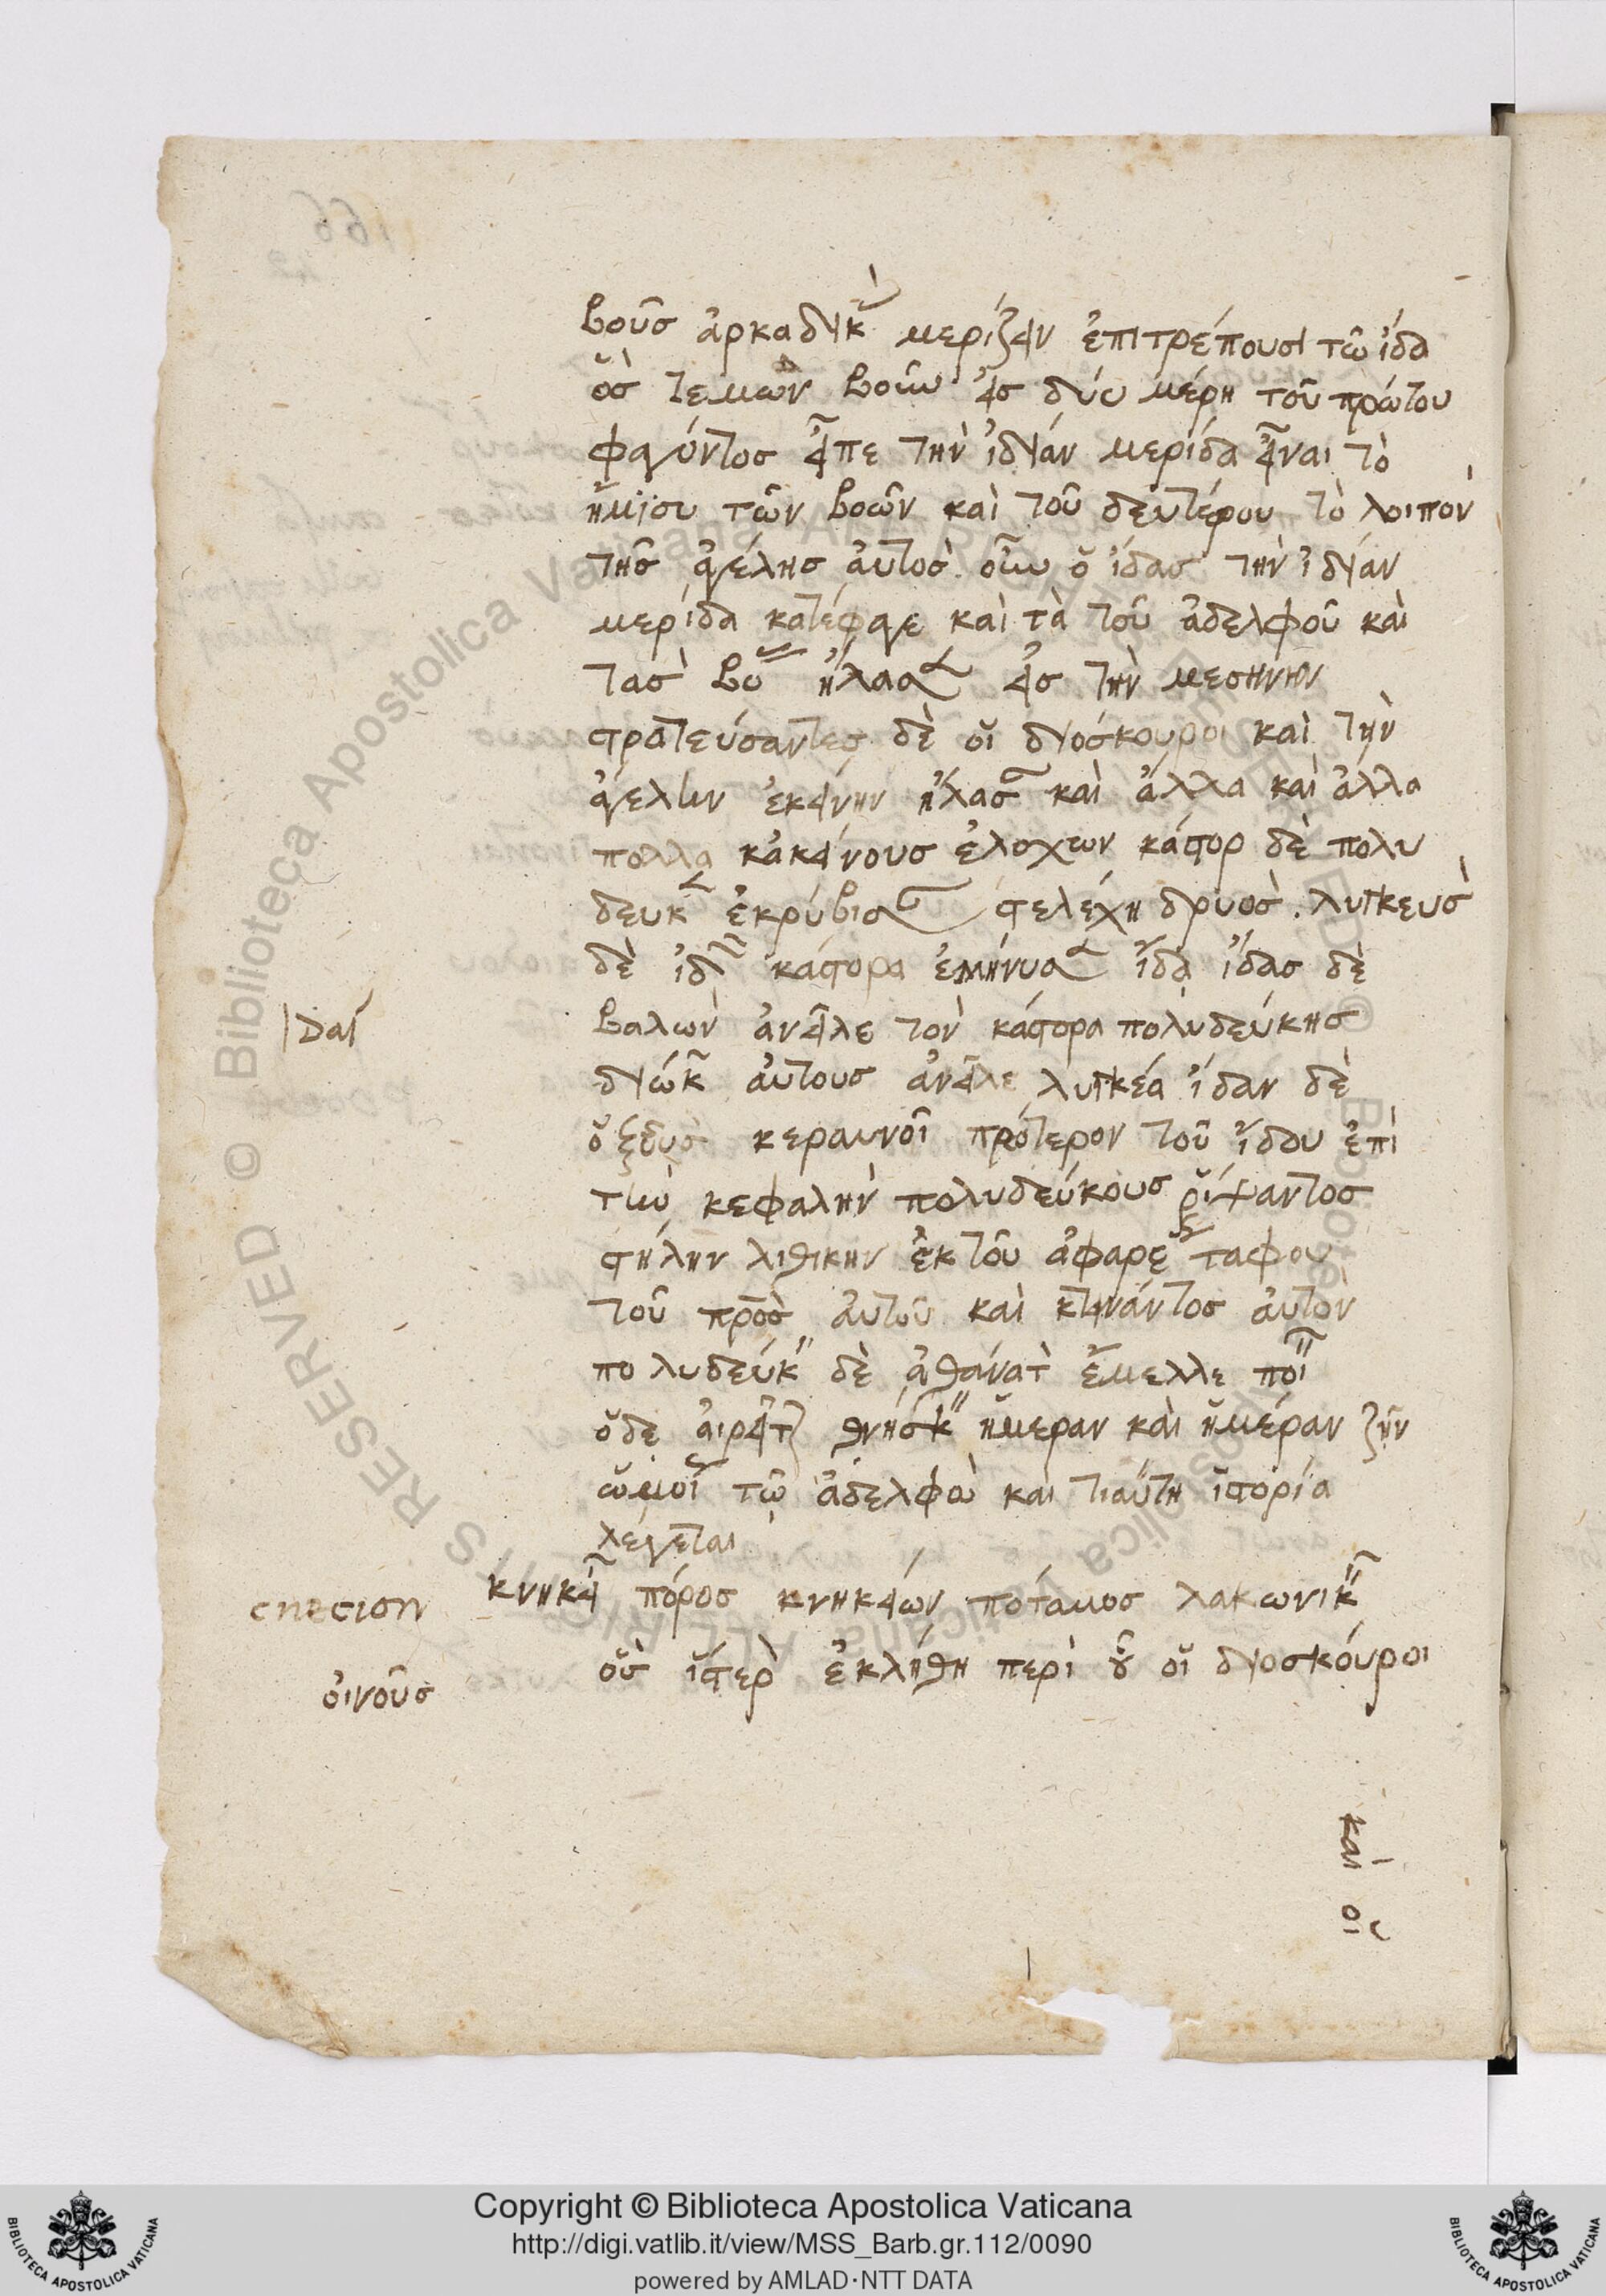 βοῦσ ἀρκαδικ μερίζειν ἐπιτρέπουσι τῶ ἴδα
ὃσ τεμὼν βοῦν εἰσ δύο μέρη τοῦ πρώτου
φαγόντοσ εἶπε τὴν ἰδίαν μερίδα εἶναι τὸ
ἥμισυ τῶν βοῶν καὶ τοῦ δευτέρου τὸ λοιπὸν
τῆσ ἀγέλησ αὐτὸσ οὖν ὁ ἴδασ τὴν ἰδίαν
μερίδα κατέφαγε καὶ τὰ τοῦ ἀδελφοῦ καὶ
τὰσ βο ἤλασ εἰσ τὴν μεσήνην
στρατεύσαντεσ δὲ οἱ διοσκουροι καὶ τὴν
ἀγελην ἐκείνην ἤλασ καὶ ἄλλα καὶ ἄλλα
πολλα κἀκείνουσ ἐλοχων κάστορ δὲ πολυ
δευκ ἐκρύβησ στελέχη δρυὸσ. λυγκευσ
δὲ ἰδ κάστορα ἐμήνυσ ἴδα ἴδασ δὲ
βαλὼν ἀνεῖλε τὸν κάστορα πολυδεύκησ
διώκ αὐτουσ ἀνεῖλε λυγκέα ἴδαν δὲ
ὁ ζευσ κεραυνοῖ πρότερον τοῦ ἴδου ἐπὶ
τὴν κεφαλὴν πολυδεύκουσ ῥίψαντοσ
στήλην λιθικην ἐκ τοῦ ἀφαρε ταφου
τοῦ πρὸσ αὐτοῦ καὶ κτηνάντοσ αὐτὸν
πολυδεύκ δὲ ἀθάνατ ἔμελλε ποι
ὁ δε αἱρεῖτ θνήσκ ἡμεραν καὶ ἡμέραν ζῆν
ὡμοι τῶ ἀδελφῶ και τιαύτη ἱστορία
λεγεται
κνηκει πόροσ κνηκείων πόταμοσ λακωνικ
ὃσ ὕστερ ἐκλήθη περὶ οὗ οἱ διοσκόυροι
Idaſ
cnecion
οἰνοῦσ
καὶ
οι
Copyright © Biblioteca Apostolica Vaticana
http://digi.vatlib.it/view/MSS_Barb.gr.112/0090
powered by AMLAD·NTT DATA
BIBLIOTECA APOSTOLICA VATICANA
BIBLIOTECA APOSTOLICA VATICANA